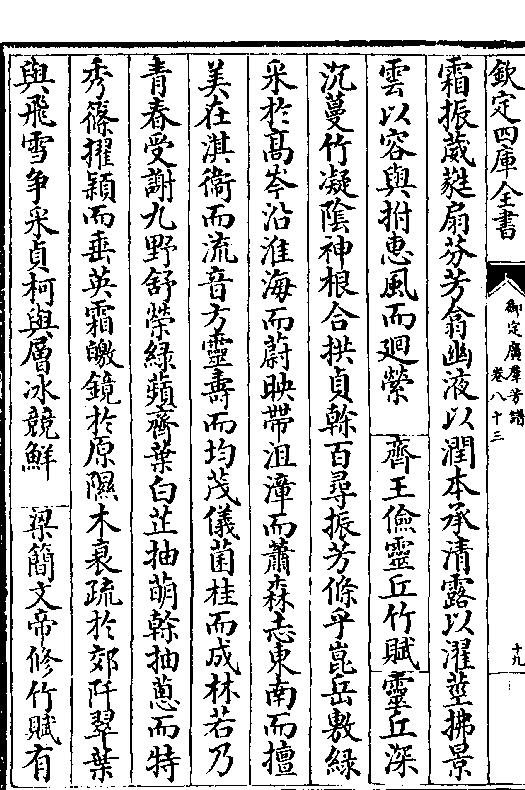 欽定四庫全書
御定廣羣芳譜
卷八十三
十九
霜振葳蕤扇芬芳翕幽液以潤本承清露以濯莖拂景
雲以容與拊惠風而廻縈 齊王儉靈丘竹賦靈丘深
沉蔓竹凝陰神根合拱貞榦百尋振芳條乎崑岳敷綠
采於髙岑沿淮海而蔚映帶沮漳而蕭森志東南而擅
美在淇衞而流音方靈壽而均茂儀菌桂而成林若乃
青春受謝九野舒榮綠蘋齊葉白芷抽萌榦抽蔥而特
秀篠擢穎而垂英霜皦鏡於原隰木衰疏於郊阡翠葉
與飛雪争采貞柯與層冰競鮮 梁簡文帝修竹賦有